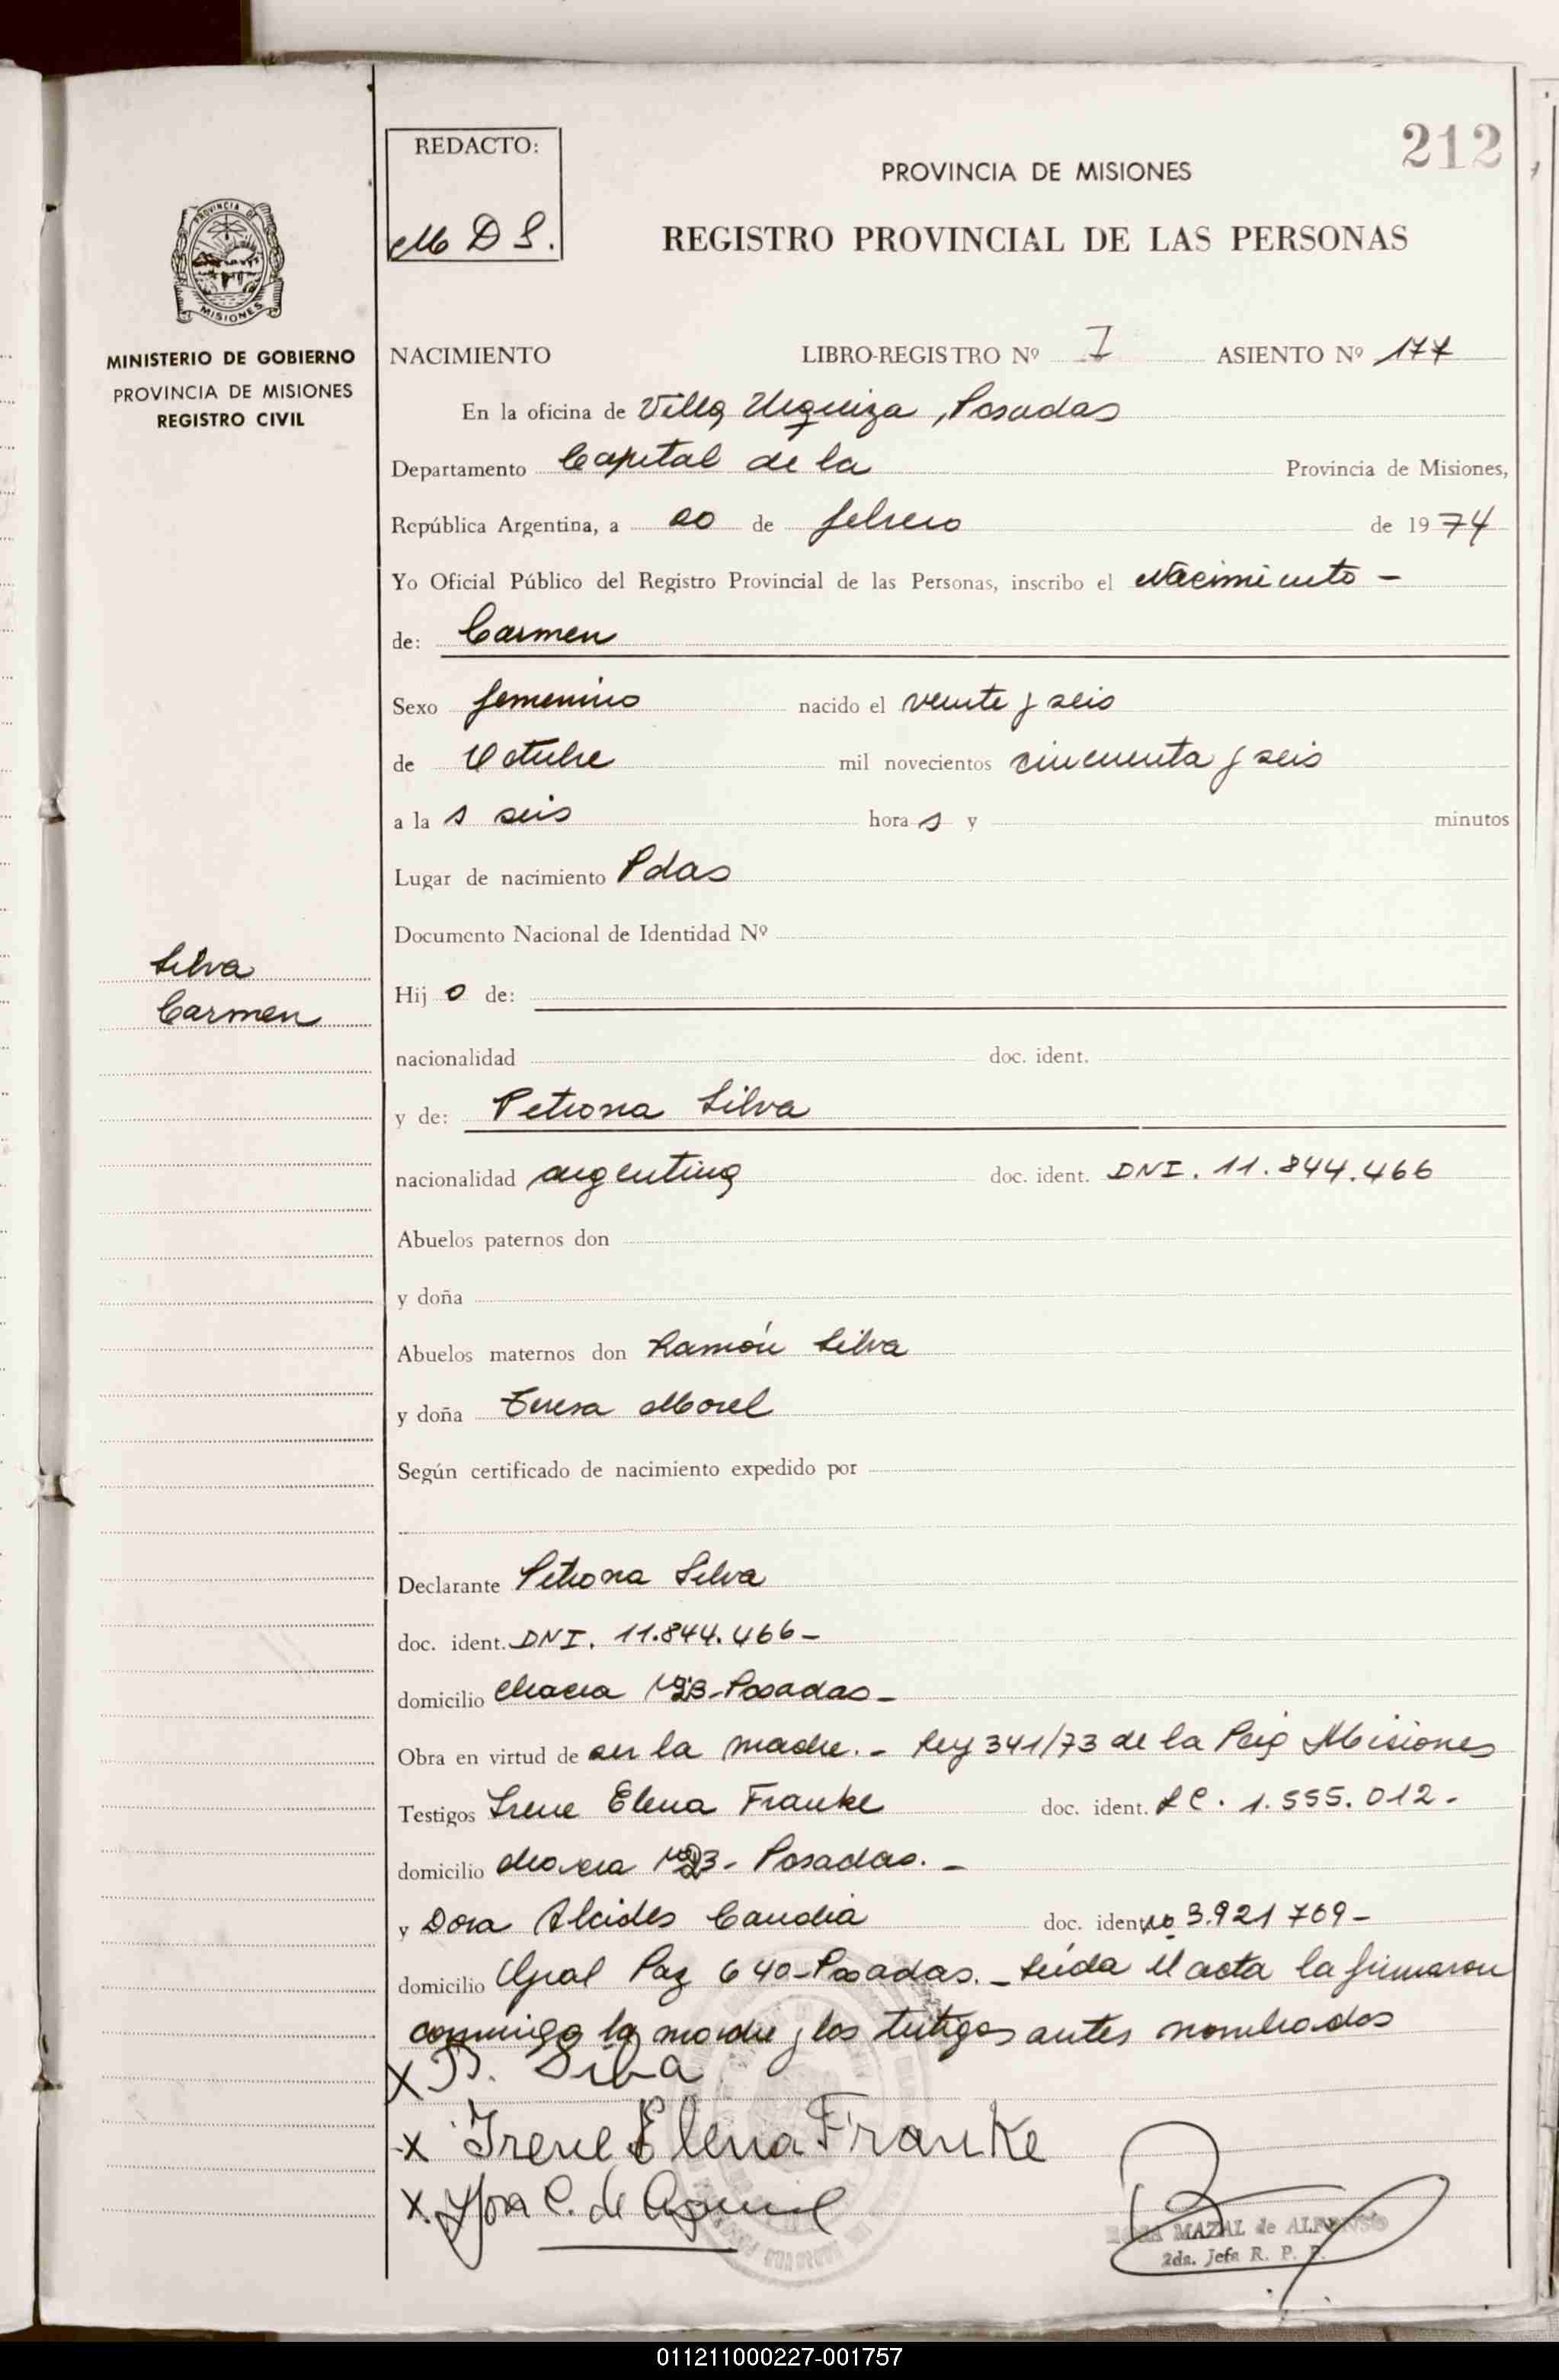 212
REDACTO:
M D S.
PROVINCIA DE MISIONES
REGISTRO PROVINCIAL DE LAS PERSONAS
PROVINCIA DE
MISIONES
MINISTERIO DE GOBIERNO
PROVINCIA DE MISIONES
REGISTRO CIVIL
NACIMIENTO LIBRO-REGISTRO Nº I ASIENTO Nº 177
En la oficina de Villa Urquiza, Posadas
Departamento Capital de la Provincia de Misiones,
República Argentina, a 20 de febrero de 1974
Yo Oficial Público del Registro Provincial de las Personas, inscribo el Nacimiento -
de: Carmen
Sexo femenino nacido el veinte y seis
de Octubre mil novecientos cincuenta y seis
a la s seis hora s y minutos
Lugar de nacimiento Pdas
Documento Nacional de Identidad Nº
Silva
Carmen
Hij o de:
nacionalidad doc. ident.
y de: Petrona Silva
nacionalidad argentina doc. ident. DNI. 11.844.466
Abuelos paternos don
y doña
Abuelos maternos don Ramón Silva
y doña Teresa Morel
Según certificado de nacimiento expedido por
Declarante Petrona Silva
doc. ident. DNI. 11.844.466-
domicilio Chacra Posadas-
Obra en virtud de ser la madre. - Ley 341/73 de la Misiones
Testigos Irene Elena Franke doc. ident. LC. 1.555.012.
domicilio chacra Posadas. -
y Dora Alcides Candia doc. ident. 3.921 769-
domicilio Gral Paz 640-Posadas. - Leída el acta la firmaron
conmigo la madre y los testigos antes nombrados
X P. Silva
X Irene Elena Franke
X C. de
ROSA MAZAL de ALFONSO
2da. Jefa R. P. P.
011211000227-001757